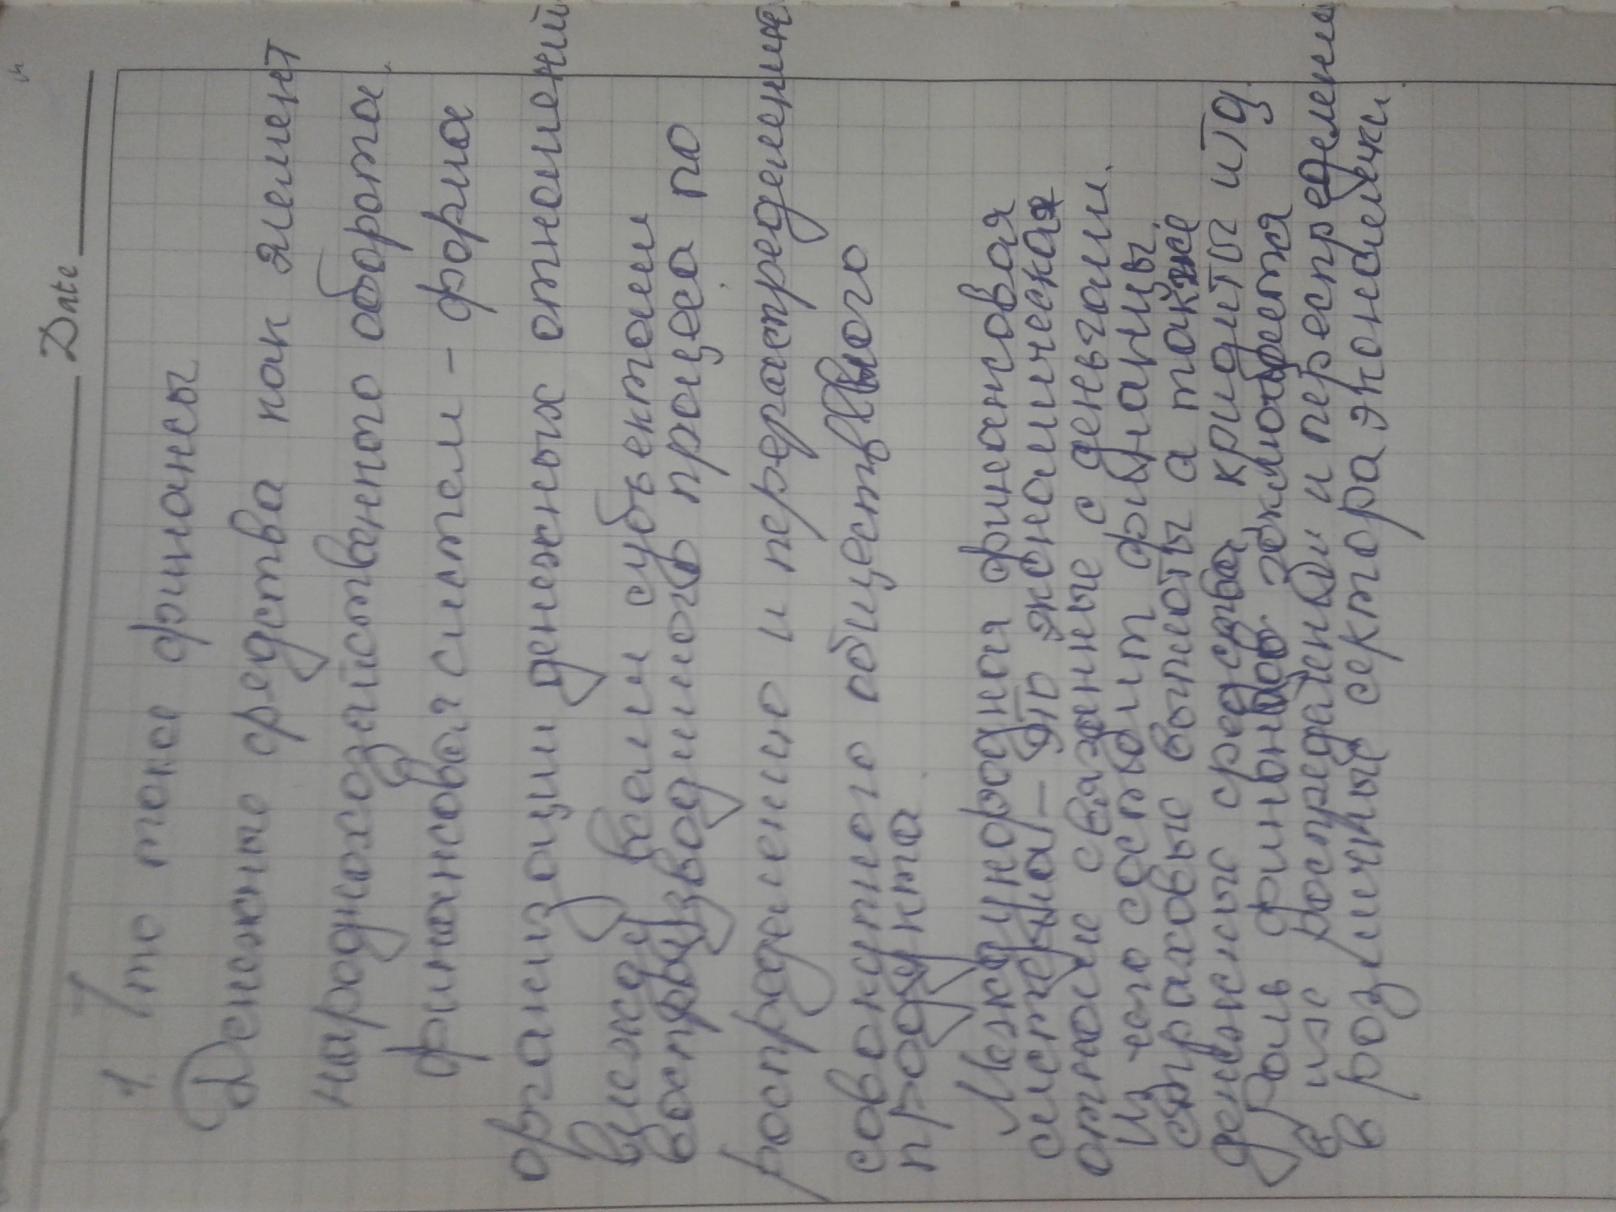 Date
1. Что такое финансы
Денежные средства как элемент
народнохозяйственного оборота.
финансовая систем - форма
организации денежных отношений
между всеми субъектами
воспроизводимого процеса по
распределению и перераспределению
совокупного общественного
продукта.
Международная финансовая
система - это экономическая
отношеие связанные с деньгами.
Из чего состоит финансы.
страховые выплоты а также
денежные средства, кридиты итд.
Роль финонсов заключается
в их роспределении и перероспределени
в розличные сектора экономики.